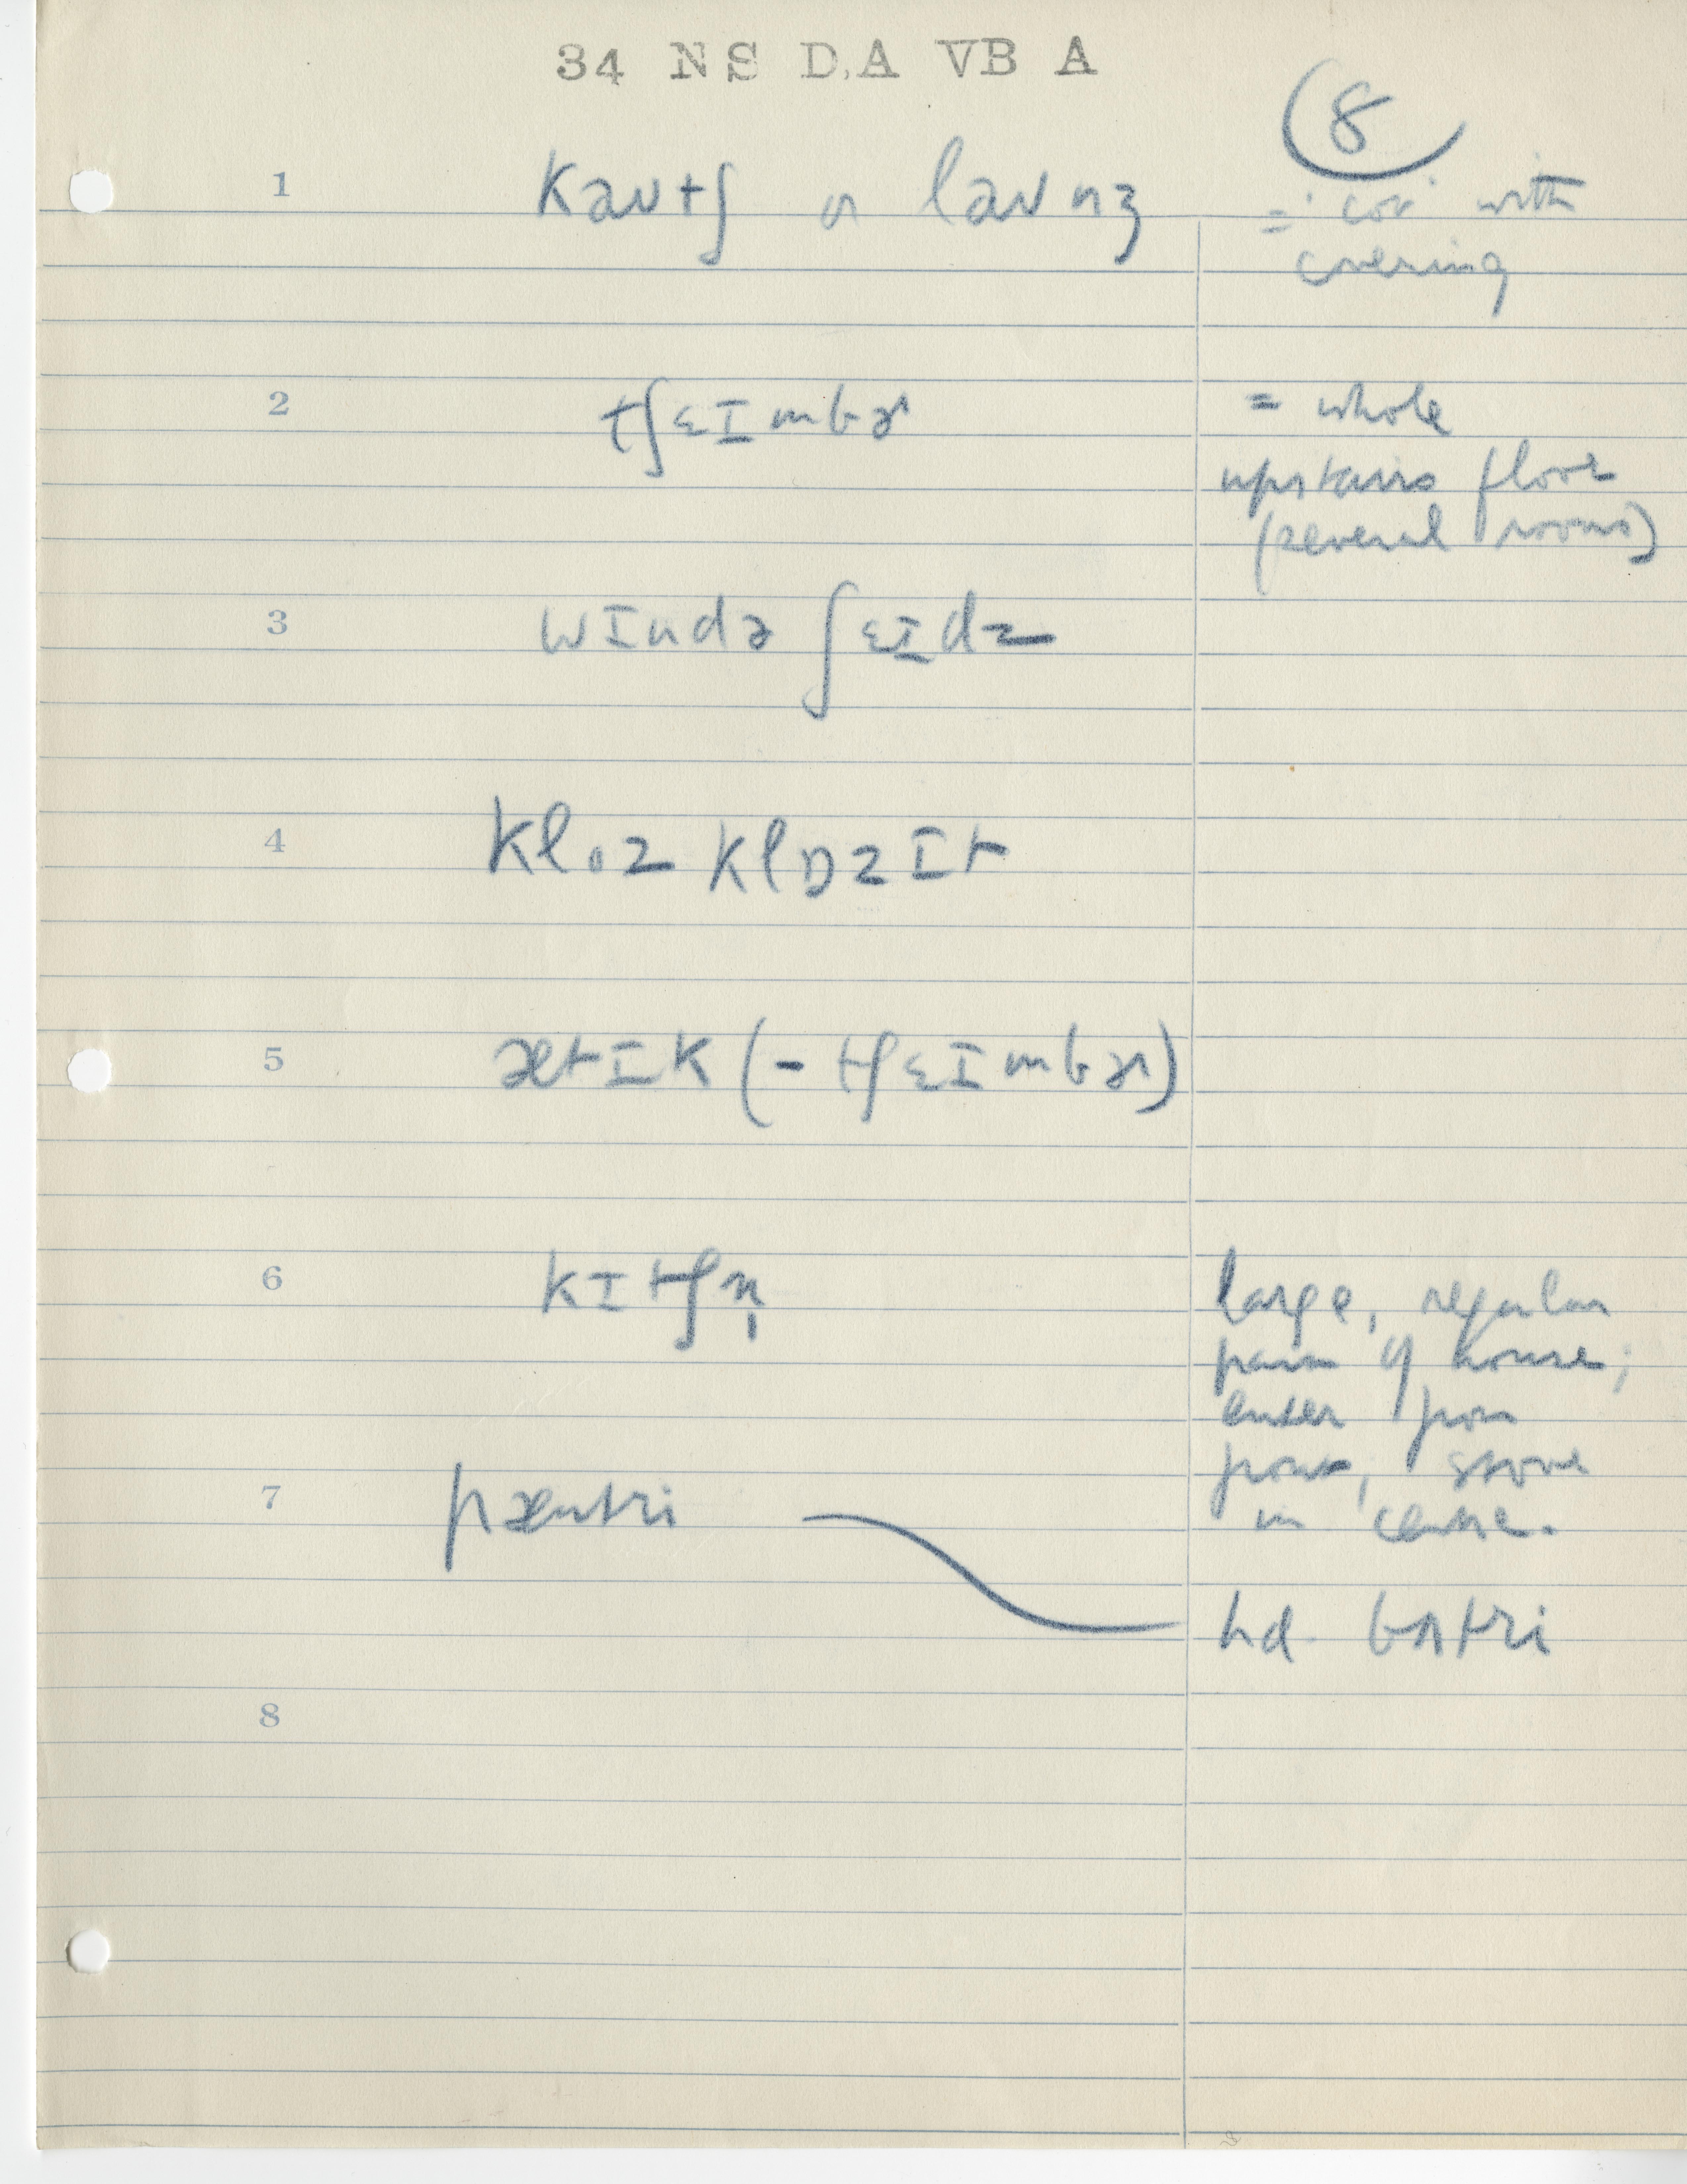 34 NS D.A VB A
8
1 kaʊtʃ or laʊnʒ = 'cov' with
covering
2 tʃɛɪmbɚ = whole
upstairs floor
(several rooms)
3 wɪndə ʃɛɪdz
4 kloz klɒzɪt
5 ætɪk (- tʃɛɪmbɚ)
6 kɪtʃn̩ large, regular
part of house;
enter from
front, stove
in centre.
7 pæntri hd. bʌtri
8